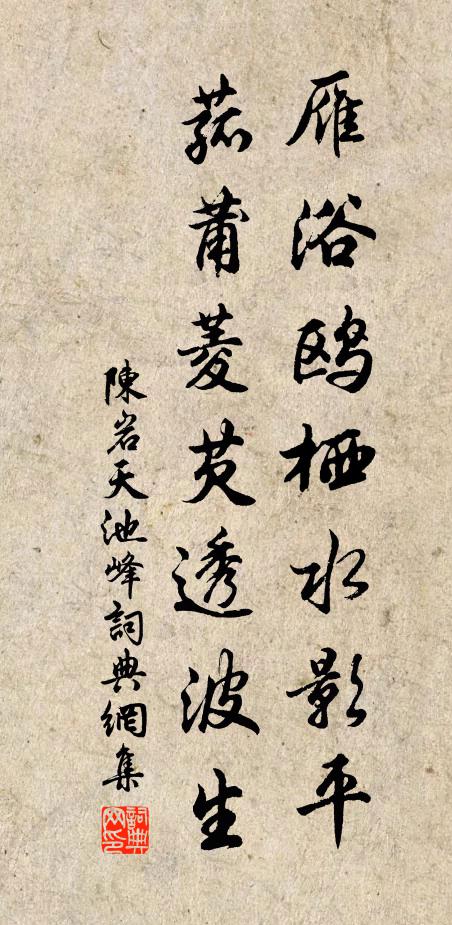 雁浴鸥栖水影平
菰莆菱芡透波生
陳岩天池峰詞典網集
詞典网印